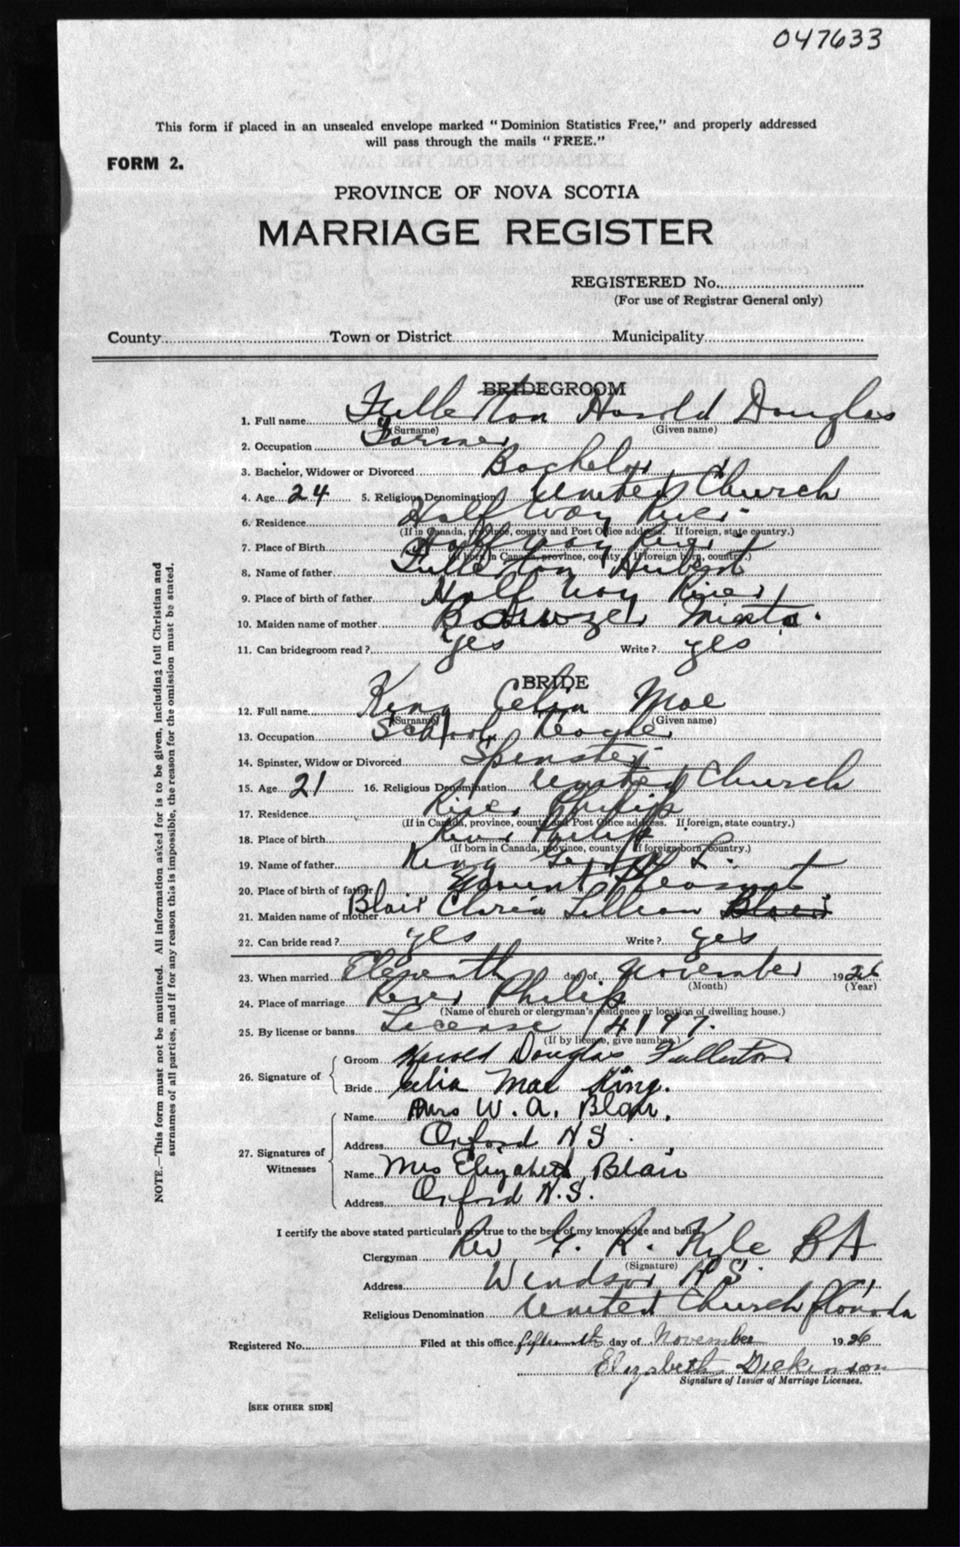 047633
This form if placed in an unsealed envelope marked "Dominion Statistics Free," and properly addressed
will pass through the mails "FREE."
FORM 2.
PROVINCE OF NOVA SCOTIA
MARRIAGE REGISTER
REGISTERED No.
(For use of Registrar General only)
County Town or District Municipality
BRIDEGROOM
1. Full name Fullerton Harold Douglas
(Surname) (Given name)
2. Occupation Farmer
3. Bachelor, Widower or Divorced Bachelor
4. Age 24 5. Religious Denomination United Church
6. Residence Half Way River
(If in Canada, province, county and Post Office address. If foreign, state country.)
7. Place of Birth Half Way River
(If born in Canada, province, county. If foreign born, country.)
8. Name of father Fullerton Hubert
9. Place of birth of father Half Way River
10. Maiden name of mother
11. Can bridegroom read? yes Write? yes
BRIDE
12. Full name King Celia Mae
(Surname) (Given name)
13. Occupation School Teacher
14. Spinster, Widow or Divorced Spinster
15. Age 21 16. Religious Denomination United Church
17. Residence River Philip
(If in Canada, province, county and Post Office address. If foreign, state country.)
18. Place of birth River Philip
(If born in Canada, province, county. If foreign born, country.)
19. Name of father King L.
20. Place of birth of father Mount Pleasant
21. Maiden name of mother Blair Lillian Blair
22. Can bride read? yes Write? yes
23. When married Eleventh day of November 1926
(Month) (Year)
24. Place of marriage River Philip
(Name of church or clergyman's residence or location of dwelling house.)
25. By license or banns License 14197.
(If by license, give number.)
26. Signature of Groom Harold Douglas Fullerton
Bride Celia Mae King.
27. Signatures of Witnesses Name Mrs W. A. Blair.
Address Oxford N S.
Name Mrs Elizabeth Blair
Address Oxford N.S.
I certify the above stated particulars are true to the best of my knowledge and belief
Clergyman Rev G. R. Kyle BA
(Signature)
Address Windsor N S.
Religious Denomination United Church of Canada
Registered No. Filed at this office fifteenth day of November 1926
Elizabeth Dickinson
Signature of Issuer of Marriage Licenses.
[SEE OTHER SIDE]
NOTE.—This form must not be mutilated. All information asked for is to be given, including full Christian and
surnames of all parties, and if for any reason this is impossible, the reason for the omission must be stated.